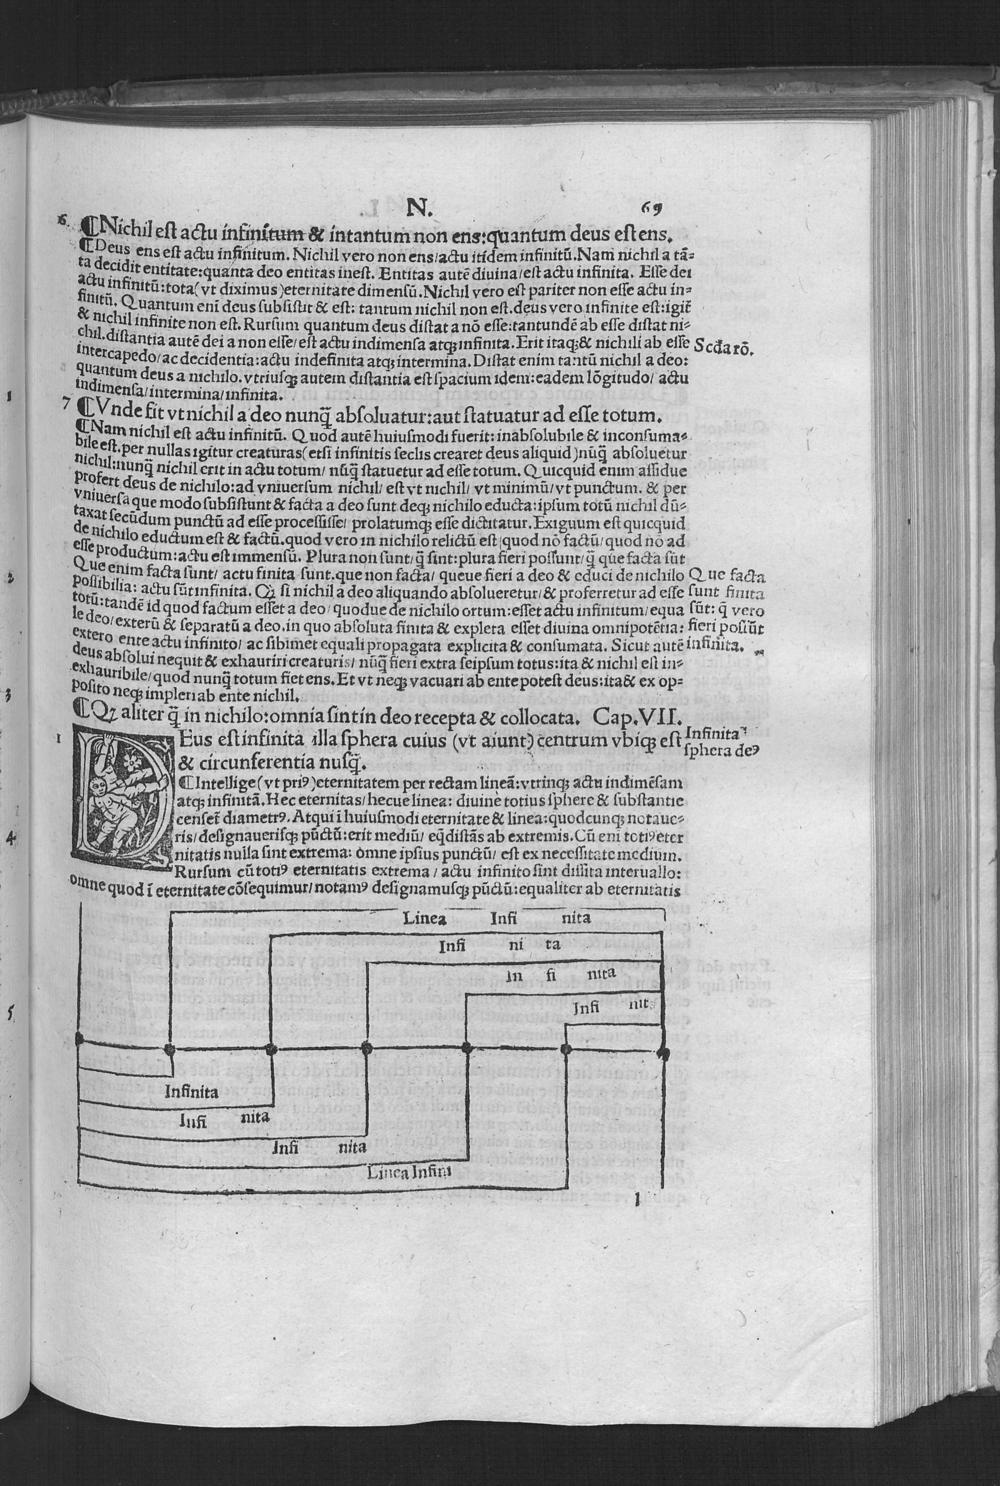 N. 69
6. ¶Nichil est actu infinitum & intantum non ens: quantum deus est ens.
¶Deus ens est actu infinitum. Nichil vero non ens/actu itidem infinitū. Nam nichil a tā=
ta decidit entitate: quanta deo entitas inest. Entitas autē diuina/est actu infinita. Esse dei
actu infinitū: tota (vt diximus) eternitate dimensū. Nichil vero est pariter non esse actu in=
finitū. Quantum eni deus subsistit & est: tantum nichil non est. deus vero infinite est: igit̄
& nichil infinite non est. Rursum quantum deus distat a nō esse: tantundē ab esse distat ni=
chil. distantia autē dei a non esse/est actu indimensa atq; infinita. Erit itaq; & nichili ab esse
Scda rō.
intercapedo/ac decidentia: actu indefinita atq; intermina. Distat enim tantū nichil a deo:
quantum deus a nichilo. vtriusq; autem distantia est spacium idem: eadem lōgitudo/ actu
indimensa/intermina/infinita.
7 ¶Vnde fit vt nichil a deo nunq̄ absoluatur: aut statuatur ad esse totum.
¶Nam nichil est actu infinitū. Quod autē huiusmodi fuerit: inabsolubile & inconsuma=
bile est. per nullas igitur creaturas (etsi infinitis seclis crearet deus aliquid) nūq̄ absoluetur
nichil: nunq̄ nichil erit in actu totum/ nūq̄ statuetur ad esse totum. Quicquid enim assidue
profert deus de nichilo: ad vniuersum nichil/ est vt nichil/ vt minimū/ vt punctum. & per
vniuersa que modo subsistunt & facta a deo sunt deq; nichilo educta: ipsum totū nichil dū=
taxat secūdum punctū ad esse processisse/ prolatumq; esse dictitatur. Exiguum est quicquid
de nichilo eductum est & factū. quod vero in nichilo relictū est/quod nō factū/quod nō ad
esse productum: actu est immensū. Plura non sunt/ q̄ sint: plura fieri possunt/ q̄ que facta sūt
Que enim facta sunt/ actu finita sunt. que non facta/ queue fieri a deo & educi de nichilo
Que facta
possibilia: actu sūt infinita. Qz si nichil a deo aliquando absolueretur/ & proferretur ad esse
sunt finita
totū: tandē id quod factum esset a deo/ quodue de nichilo ortum: esset actu infinitum/ equa
sūt: q̄ vero
le deo/ exterū & separatū a deo. in quo absoluta finita & expleta esset diuina omnipotētia:
fieri possūt
extero ente actu infinito/ ac sibimet equali propagata explicita & consumata. Sicut autē
infinita.
deus absolui nequit & exhauriri creaturis/ nūq̄ fieri extra seipsum totus: ita & nichil est in=
exhauribile/ quod nunq̄ totum fiet ens. Et vt neq; vacuari ab ente potest deus: ita & ex op=
posito neq; impleri ab ente nichil.
¶Qz aliter q̄ in nichilo: omnia sint in deo recepta & collocata. Cap. VII.
1 DEus est infinita illa sphera cuius (vt aiunt) centrum vbiq; est
Infinitaꝰ
sphera deꝰ
& circunferentia nusq̄.
¶Intellige (vt priꝰ) eternitatem per rectam lineā: vtrinq; actu indimēsam
atq; infinitā. Hec eternitas/ hecue linea: diuine totius sphere & substantie
censet̄ diametrꝰ. Atqui ī huiusmodi eternitate & linea: quodcunq; notaue=
ris/ designauerisq; pūctū: erit mediū/ eq̄distās ab extremis. Cū eni totiꝰ eter
nitatis nulla sint extrema: omne ipsius punctū/ est ex necessitate medium.
Rursum cū totiꝰ eternitatis extrema/ actu infinito sint dissita interuallo:
omne quod ī eternitate cōsequimur/ notamꝰ designamusq; pūctū: equaliter ab eternitatis
Linea Infi nita
Infi ni ta
In fi nita
Infi nit
Infinita
Infi nita
Infi nita
Linea Infini
1
1
2
3
4
5